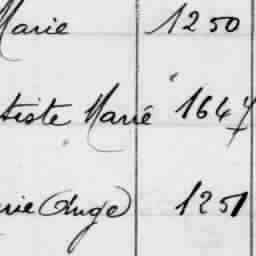 Marie 1250
tiste Marié 1647
rie Ange 1251